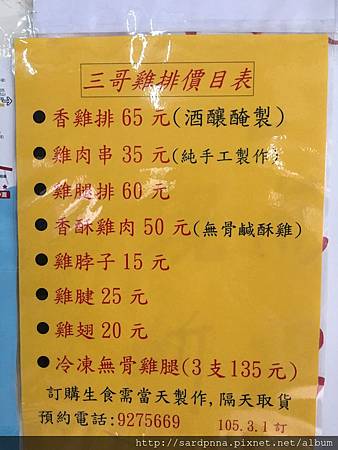 三哥雞排價目表
●香雞排 65 元(酒釀醃製)
●雞肉串 35 元(純手工製作)
●雞腿排 60 元
●香酥雞肉 50 元(無骨鹹酥雞)
●雞脖子 15 元
●雞腱 25 元
●雞翅 20 元
●冷凍無骨雞腿(3支135元)
訂購生食需當天製作,隔天取貨
預約電話:9275669
105.3.1 訂
http://sardpnna.pixnet.net/album